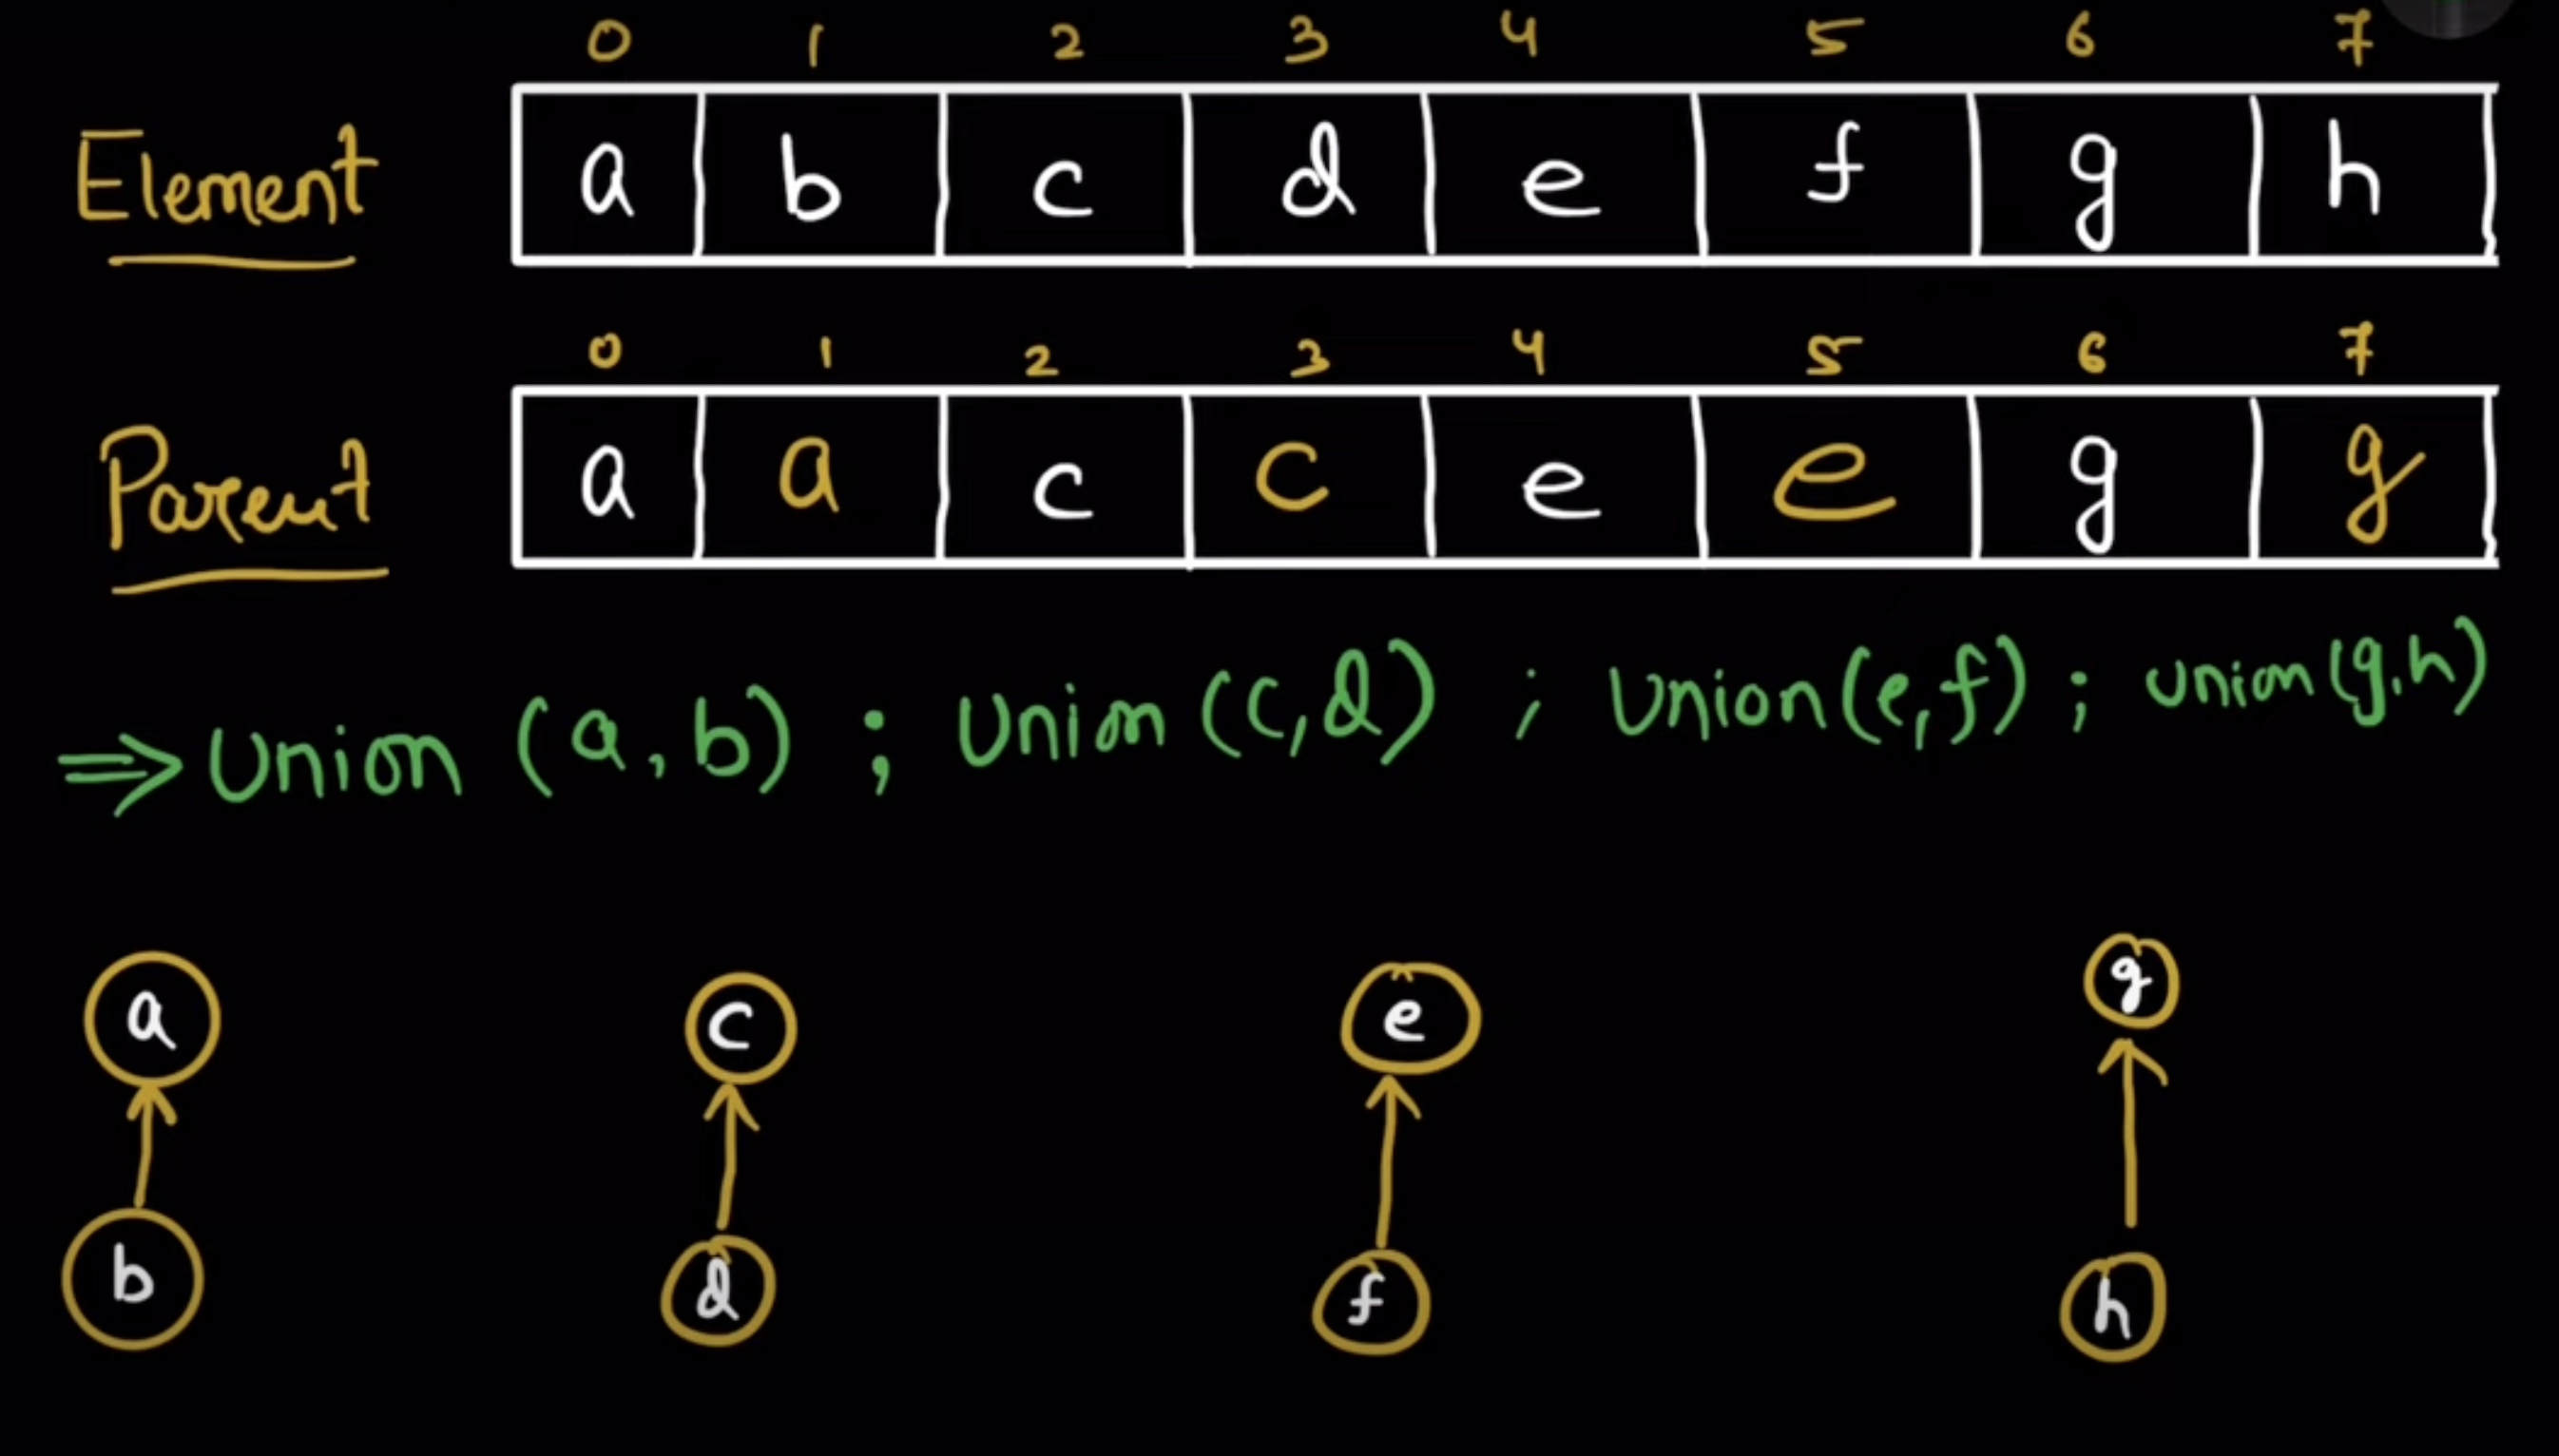 0 1 2 3 4 5 6 7
Element a b c d e f g h
0 1 2 3 4 5 6 7
Parent a a c c e e g g
⇒ Union (a, b) ; Union (c, d) ; Union (e, f) ; Union (g, h)
a c e g
b d f h